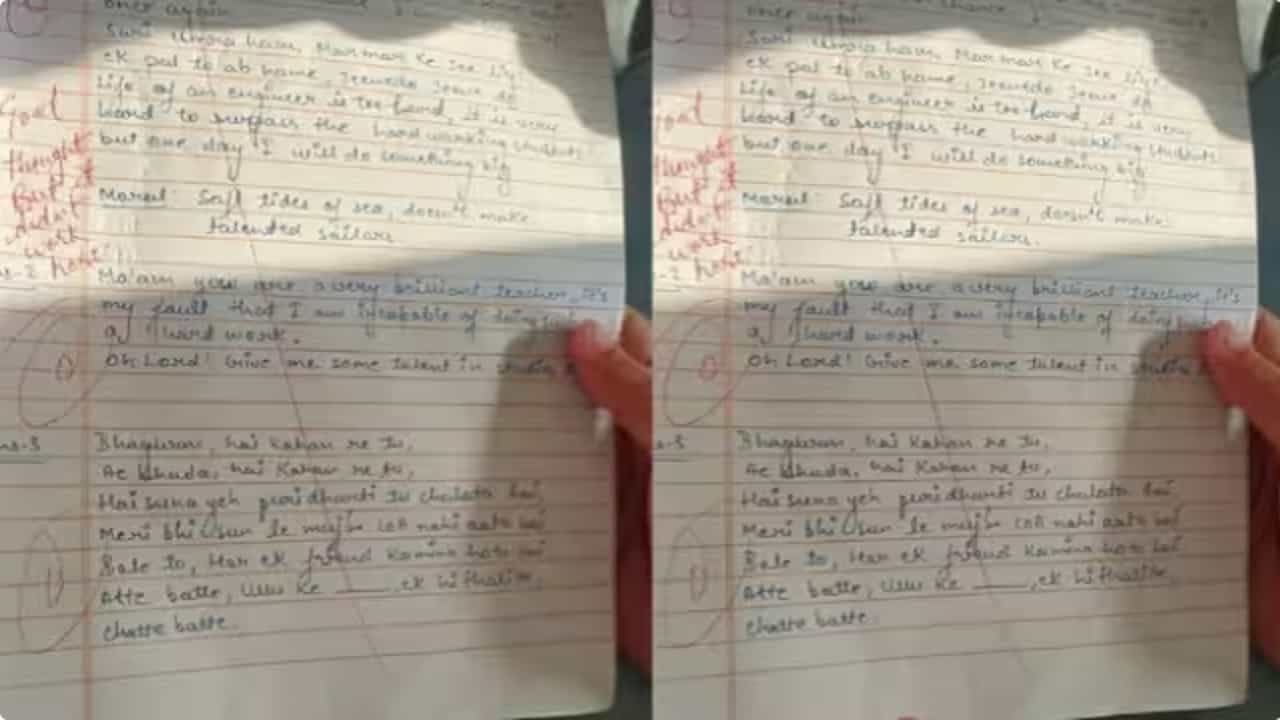 once again.
Sari umra hum, Marmar ke jee liye
ek pal to ab hame, jeenedo jeene do
Life of an engineer is too hard, it is very
hard to surpass the hardworking students
but one day I will do something big
Moral: Soft tides of sea, doesn't make
talented sailors.
Good
thought
But it
didn't
work
here
Ma'am you are a very brilliant teacher, it's
my fault that I am incapable of
a hard work.
Oh Lord! Give me some talent in
Bhagwan, hai kahan re tu,
Ae khuda, hai kahan re tu,
Hai suna yeh puri dharti tu chalata hai,
Meri bhi sun le mujhe nahi aata hai
Sale to, Har ek friend kamina hota hai
Atte batte, Ullu ke ____, ek hi thali ke
chatte batte.
once again
Sari umra hum, Marmar ke jee liye
ek pal to ab hame, jeenedo jeene do
Life of an engineer is too hard, it is very
hard to surpass the hardworking students
but one day I will do something big
Moral: Soft tides of sea, doesn't make
talented sailors.
Ma'am you are a very brilliant teacher, it's
my fault that I am incapable of
a hard work.
Oh Lord! Give me some talent in
Bhagwan, hai kahan re tu,
Ae khuda, hai kahan re tu,
Hai suna yeh puri dharti tu chalata hai,
Meri bhi sun le mujhe nahi aata hai
Sale to, Har ek friend kamina hota hai
Atte batte, Ullu ke ____, ek hi thali ke
chatte batte.